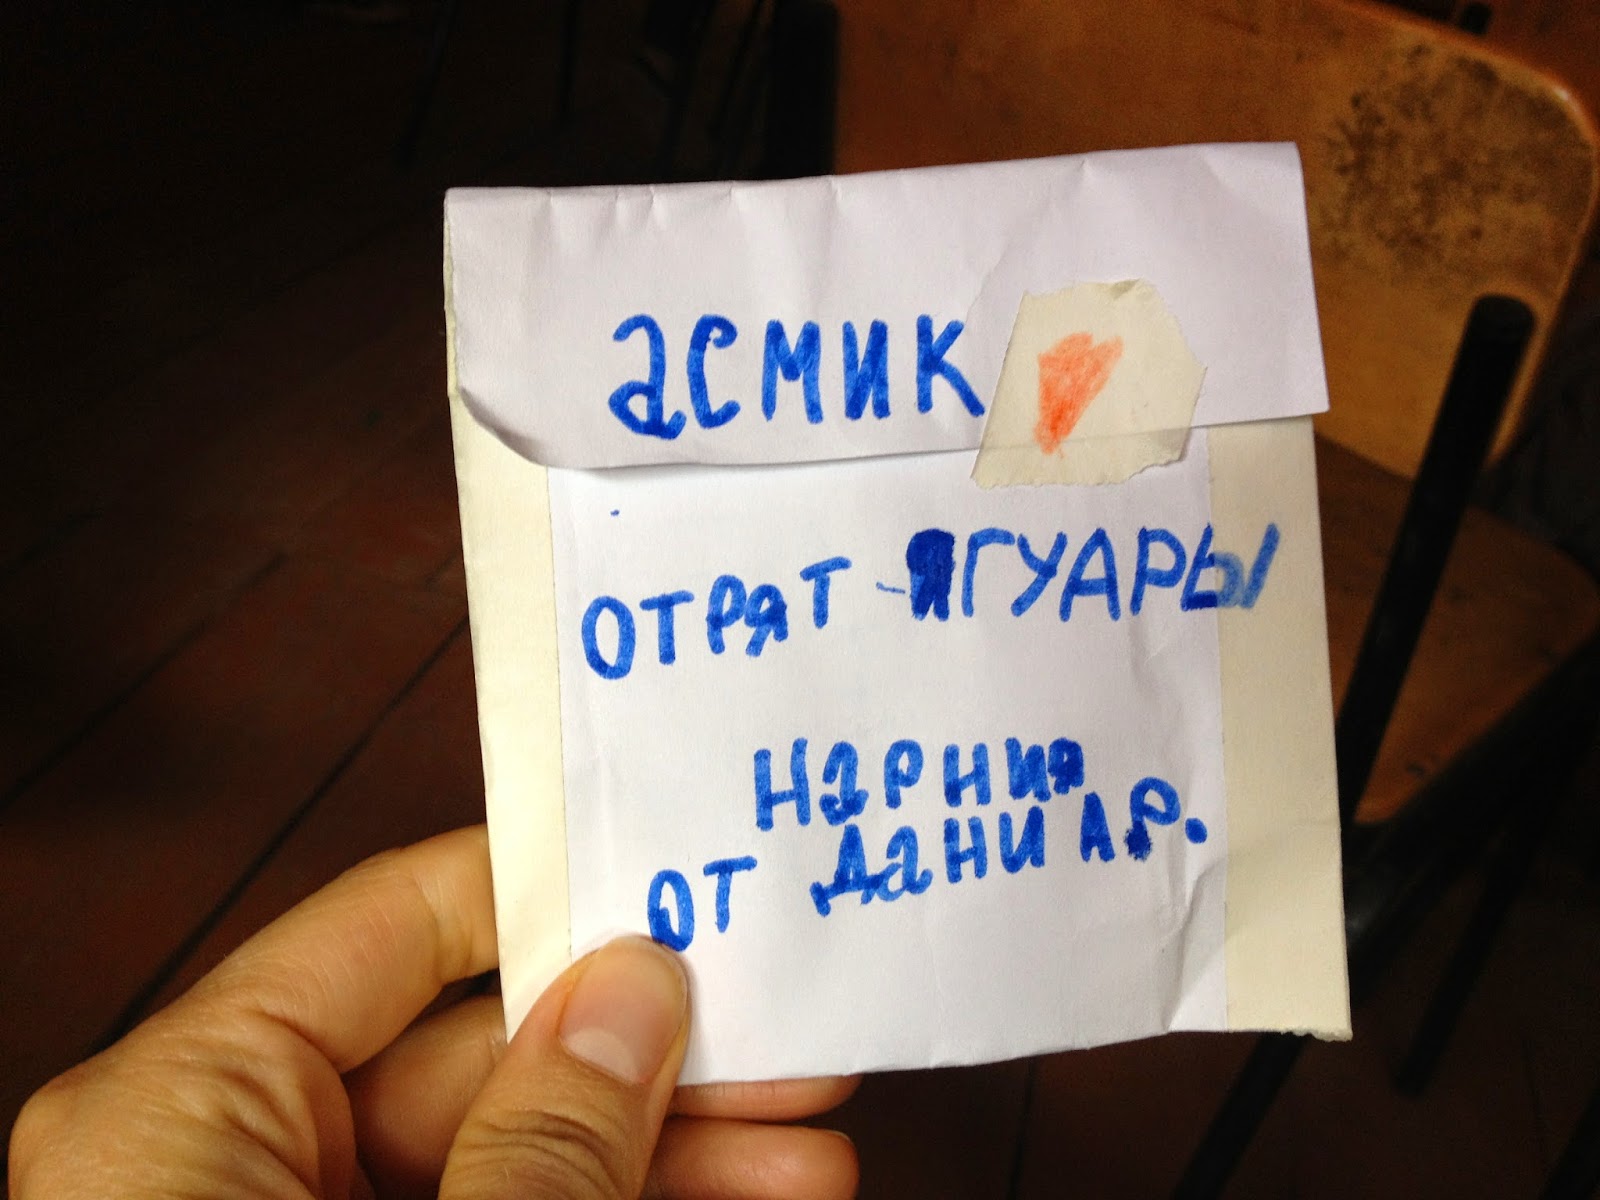 асмик
отрят - ЯГУАРЫ
нарния
от даниАР.